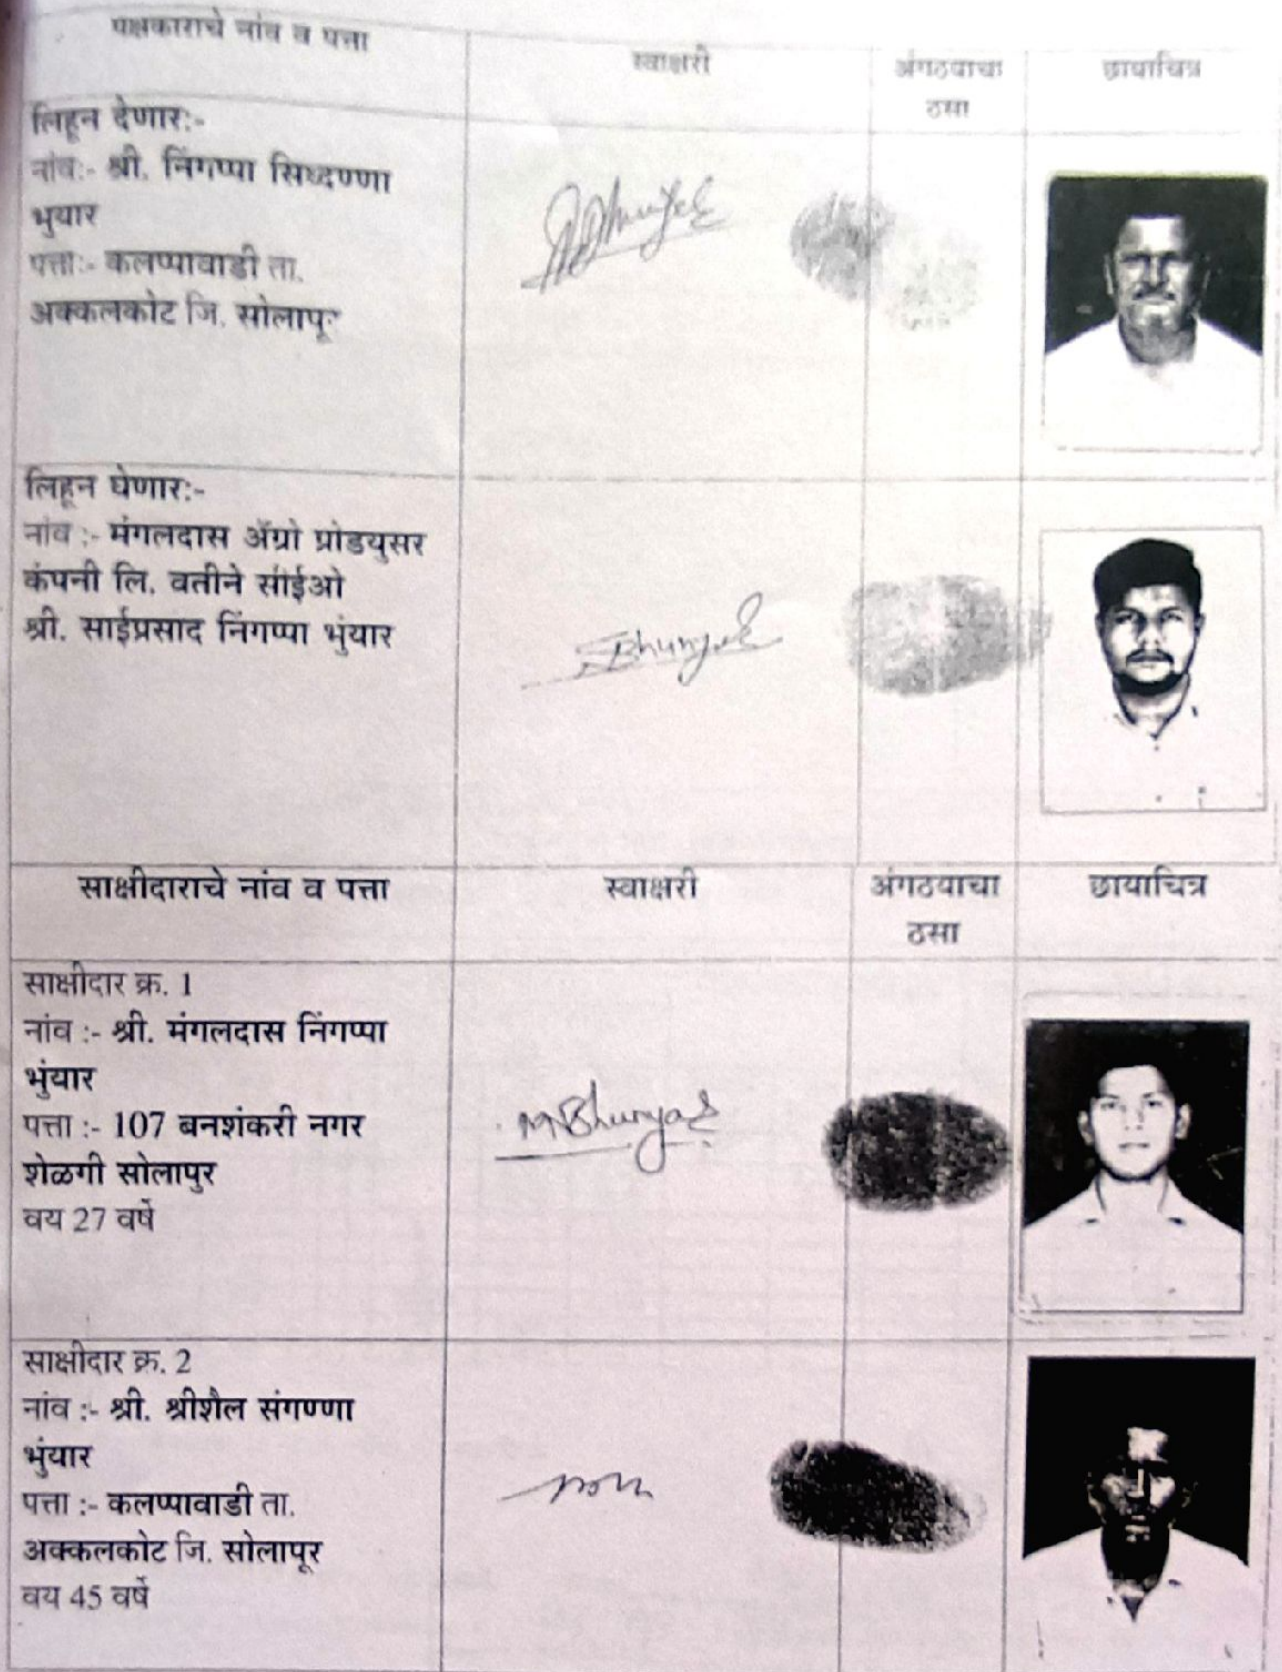 पक्षकाराचे नांव व पत्ता
स्वाक्षरी
अंगठयाचा
ठसा
छायाचित्र
लिहून देणार:-
नांव:- श्री. निंगप्पा सिध्दण्णा
भुयार
पत्ता:- कलप्पावाडी ता.
अक्कलकोट जि. सोलापूर
लिहून घेणार:-
नांव :- मंगलदास ॲग्रो प्रोडयुसर
कंपनी लि. वतीने सीईओ
श्री. साईप्रसाद निंगप्पा भुंयार
साक्षीदाराचे नांव व पत्ता
स्वाक्षरी
अंगठयाचा
ठसा
छायाचित्र
साक्षीदार क्र. 1
नांव :- श्री. मंगलदास निंगप्पा
भुंयार
पत्ता :- 107 बनशंकरी नगर
शेळगी सोलापुर
वय 27 वर्षे
M Bhuyar
साक्षीदार क्र. 2
नांव :- श्री. श्रीशैल संगण्णा
भुंयार
पत्ता :- कलप्पावाडी ता.
अक्कलकोट जि. सोलापूर
वय 45 वर्षे